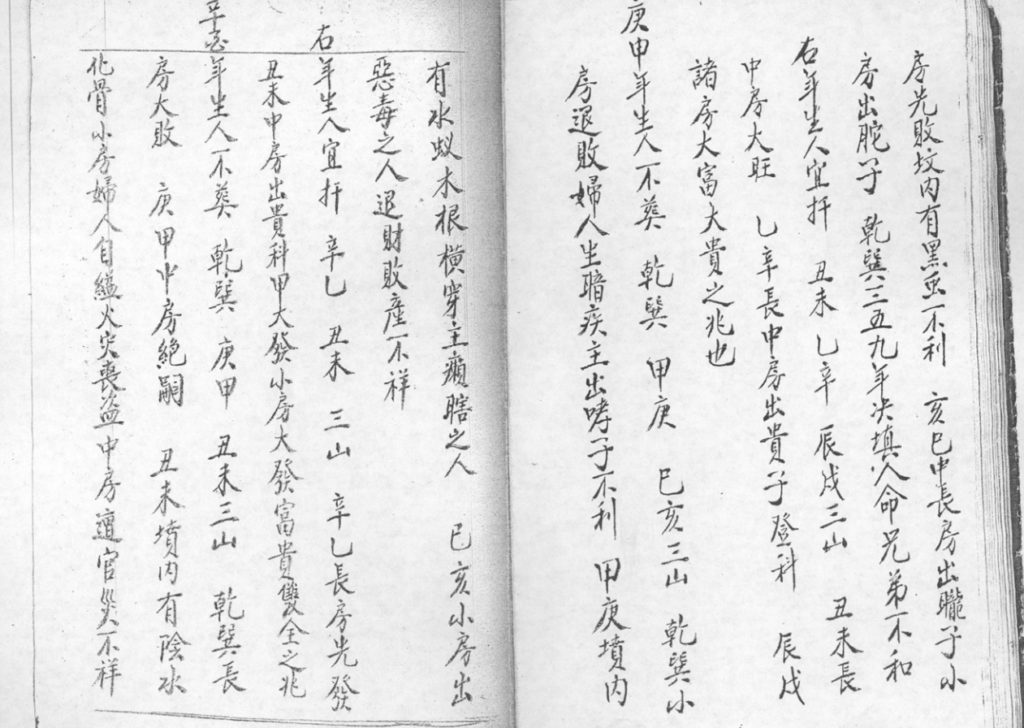 房先敗墳內有黑虫不利　亥巳中長房出矓子小
房出駝子　乾巽三五九年决填人命兄弟不和
右年生人宜扦　丑未　乚辛　辰戍三山　丑未長
中房大旺　乚辛長中房出貴子登科　辰戍
諸房大富大貴之兆也
庚申年生人不葬　乾巽　甲庚　巳亥三山　乾巽小
房退敗婦人生暗疾主出哮子不利　甲庚墳內
有水蚁木根橫穿主癩瞎之人　巳亥小房出
惡毒之人退財敗產不祥
右年生人宜扦　辛乚　丑未　三山　辛乚長房先發
丑未中房出貴科甲大發小房大發富貴雙全之兆
年生人不葬　乾巽　庚甲　丑未三山　乾巽長
房大敗　庚甲中房絕嗣　丑未墳內有陰水
化骨小房婦人自縊火災喪盜中房遭官災不祥